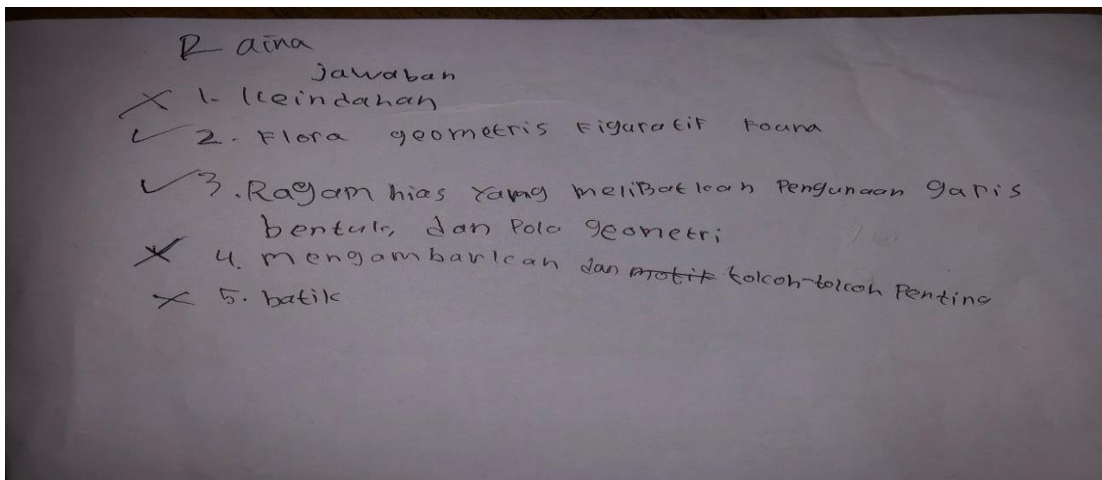 Raina
jawaban
1. Keindahan
2. Flora geometris Figuratif Founa
3. Ragam hias yang meliBatkan Pengunaan garis
bentuk, dan Pola geometri
4. mengambarkan dan motif tokoh-tokoh Penting
5. batik